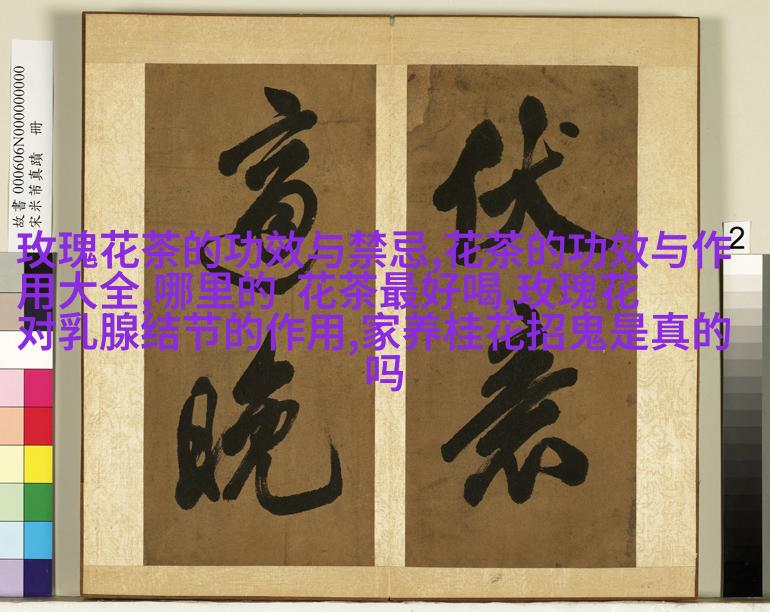 玫瑰花茶的功效与禁忌,花茶的功效与作
用大全,哪里的 花茶最好喝,玫瑰花
对乳腺结节的作用,家养桂花招鬼是真的
吗
伏
適晚
故書 000606N000000000
宋米芾真蹟 冊
2